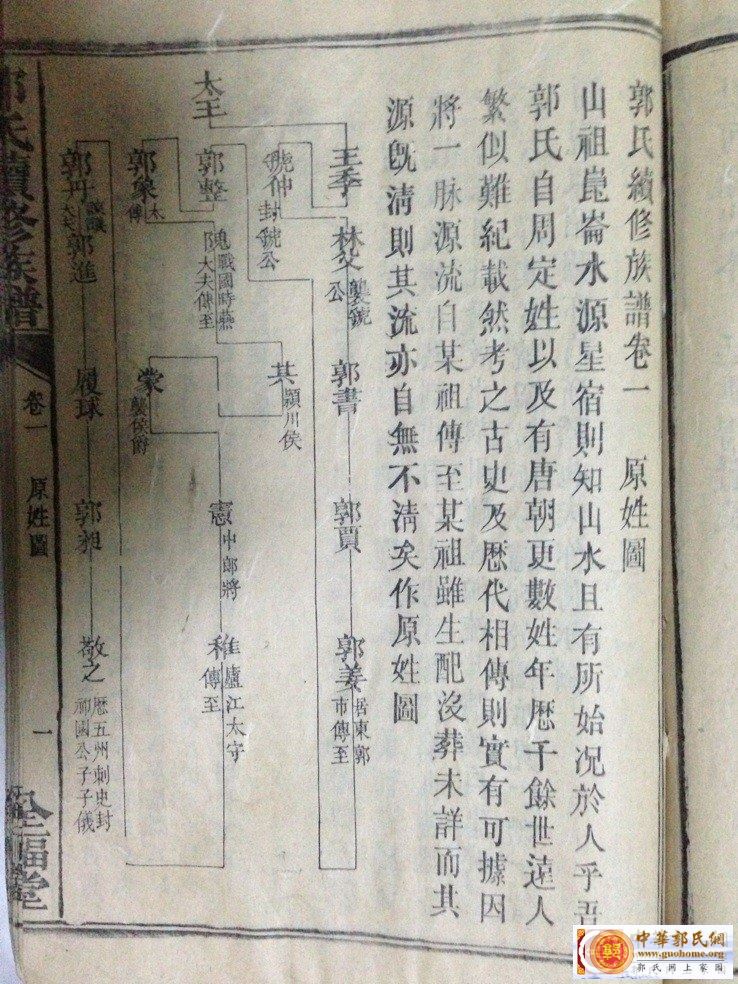 郭氏續修族譜卷一　原姓圖
山祖崑崙水源星宿則知山水且有所始况於人乎吾
郭氏自周定姓以及有唐朝更數姓年歷千餘世遠人
繁似難紀載然考之古史及歷代相傳則實有可據因
將一脉源流自某祖傳至某祖雖生配沒葬未詳而其
源既清則其流亦自無不清矣作原姓圖
王季
林父 襲虢公
郭書
郭賈
郭姜 居東郭市傳至
虢仲 封虢公
其 潁川侯
太王
郭整
隗 戰國時燕大夫傳至
憲 中郎將
稚 廬江太守傳至
郭象 太傅
蒙 襲侯爵
郭丹 諫議大夫
郭進
履球
郭昶
敬之 歷五州刺史封祁國公子子儀
郭氏續修族譜
卷一
原姓圖
一
福堂
中華郭氏網
www.guohome.org
郭氏网上家園